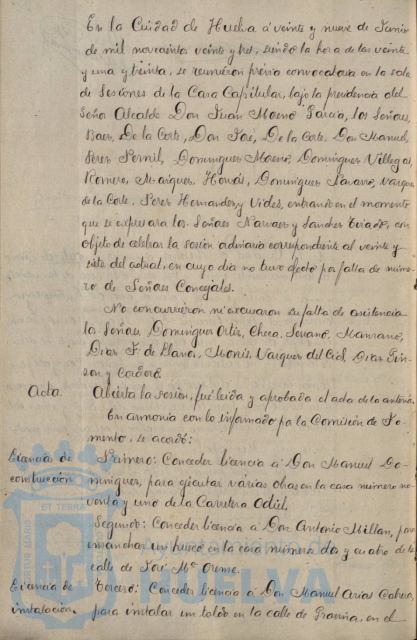 En la Ciudad de Huelva á veinte y nueve de Junio
de mil novecientos veinte y tres, siendo la hora de las veinte
y una y treinta, se reunieron previa convocatoria en la sala
de Sesiones de la Casa Capitular, bajo la presidencia del
Señor Alcalde Don Juan Moreno García, los Señores,
Baez, De la Corte, Don José, De la Corte, Don Manuel,
Perez Pernil, Dominguez Moreno, Dominguez Villegas,
Romero, Marquez, Dominguez Navarro, Vazquez
de la Corte, Perez Hernandez y Vides, entrando en el momento
que se expresara los Señores Narvaez y Sanchez Triado, con
objeto de celebrar la sesion ordinaria correspondiente al veinte y
siete del actual, en cuyo dia no tuvo efecto por falta de núme-
ro de Señores Concejales.
No concurrieron ni escusaron su falta de asistencia
los Señores Dominguez Ortiz, Checa, Serrano, Manzano,
Diaz F. de Llanos, Monis, Vazquez del Cid, Diaz Pin-
zon y Cordero.
Acta. Abierta la sesion, fué leida y aprobada el acta de la anterior.
En armonia con lo informado por la Comision de Fo-
mento, se acordó:
Licencia de Primero: Conceder licencia á Don Manuel Do-
construccion minguez, para ejecutar varias obras en la casa número no-
venta y uno de la Carretera Odiel.
Segundo: Conceder licencia á Don Antonio Millan, para
ensanchar un hueco en la casa número dos y cuatro de la
calle de José Mª
Licencia de Tercero: Conceder licencia á Don Manuel Arias
instalacion. para instalar un toldo en la calle de en el
ET TERRAE
HUELVA